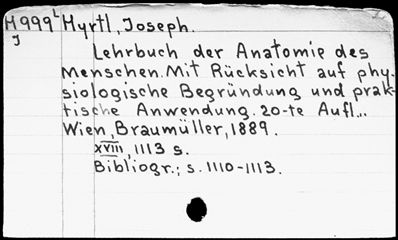 M999L Hyrtl, Joseph.
J
Lehrbuch der Anatomie des
Menschen. Mit Rücksicht auf phy-
siologische Begründung und prak-
tische Anwendung. 20-te Aufl...
Wien, Braumüller, 1889.
XVIII, 1113 s.
Bibliogr.: s. 1110-1113.